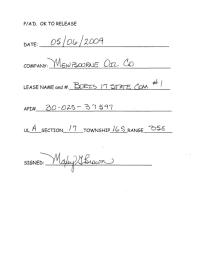 P/A'D. OK TO RELEASE
DATE: 05/06/2009
COMPANY: MEWBOURNE OIL CO
LEASE NAME and #. BORES 17 STATE COM #1
API# 30-025-37597
UL A SECTION 17 TOWNSHIP 16S RANGE 35E
SIGNED: